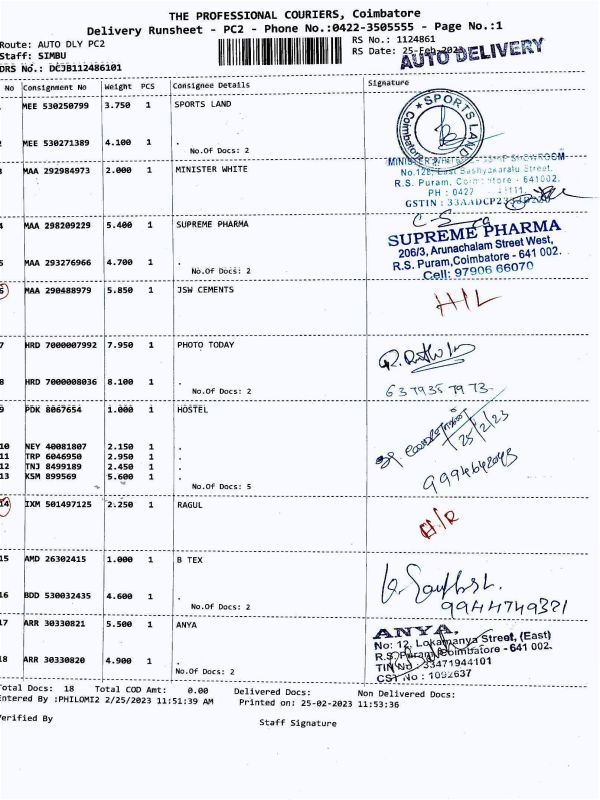 THE PROFESSIONAL COURIERS, Coimbatore
Delivery Runsheet - PC2 - Phone No.:0422-3505555 - Page No.:1
Route: AUTO DLY PC2 RS No.: 1124861
Staff: SIMBU RS Date: 25-Feb-2023
DRS No.: DCJB112486101 AUTO DELIVERY
No Consignment No Weight PCS Consignee Details Signature
MEE 530250799 3.750 1 SPORTS LAND
SPORTS LAND
Coimbatore
MEE 530271389 4.100 1 .
No.Of Docs: 2
3 MAA 292984973 2.000 1 MINISTER WHITE
R.S. Puram, Coimbatore - 641002.
PH : 0422
GSTIN : 33AADCP
4 MAA 298209229 5.400 1 SUPREME PHARMA
SUPREME PHARMA
206/3, Arunachalam Street West,
R.S. Puram, Coimbatore - 641 002.
Cell: 97906 66070
5 MAA 293276966 4.700 1 .
No.Of Docs: 2
6 MAA 290488979 5.850 1 JSW CEMENTS
H/L
7 HRD 7000007992 7.950 1 PHOTO TODAY
8 HRD 7000008036 8.100 1 .
No.Of Docs: 2
6379357973
9 PDK 8067654 1.000 1 HOSTEL
25/2/23
10 NEY 40081807 2.150 1 .
11 TRP 6046950 2.950 1 .
12 TNJ 8499189 2.450 1 .
13 KSM 899569 5.600 1 .
No.Of Docs: 5
14 IXM 501497125 2.250 1 RAGUL
H/R
15 AMD 26302415 1.000 1 B TEX
16 BDD 530032435 4.600 1 .
No.Of Docs: 2
9944749321
17 ARR 30330821 5.500 1 ANYA
ANYA,
No: 12, Lokamanya Street, (East)
R.S. Puram, Coimbatore - 641 002.
TIN No : 33471944101
CST No : 1092637
18 ARR 30330820 4.900 1 .
No.Of Docs: 2
Total Docs: 18 Total COD Amt: 0.00 Delivered Docs: Non Delivered Docs:
Entered By :PHILOMI2 2/25/2023 11:51:39 AM Printed on: 25-02-2023 11:53:36
Verified By Staff Signature